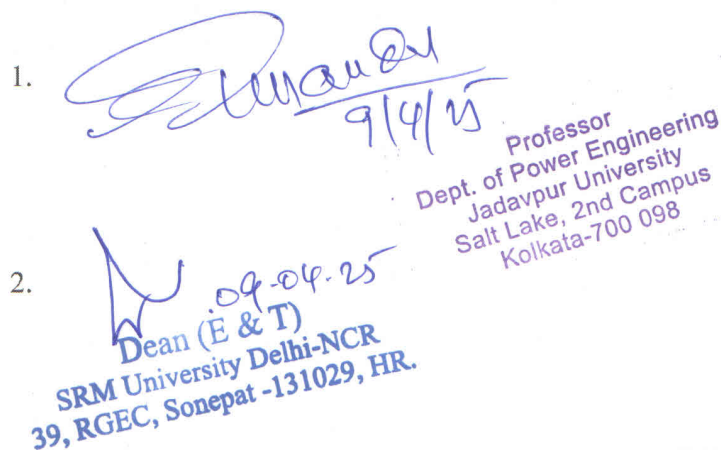 1.
9/4/25
Professor
Dept. of Power Engineering
Jadavpur University
Salt Lake, 2nd Campus
Kolkata-700 098
2.
09-04-25
Dean (E & T)
SRM University Delhi-NCR
39, RGEC, Sonepat -131029, HR.